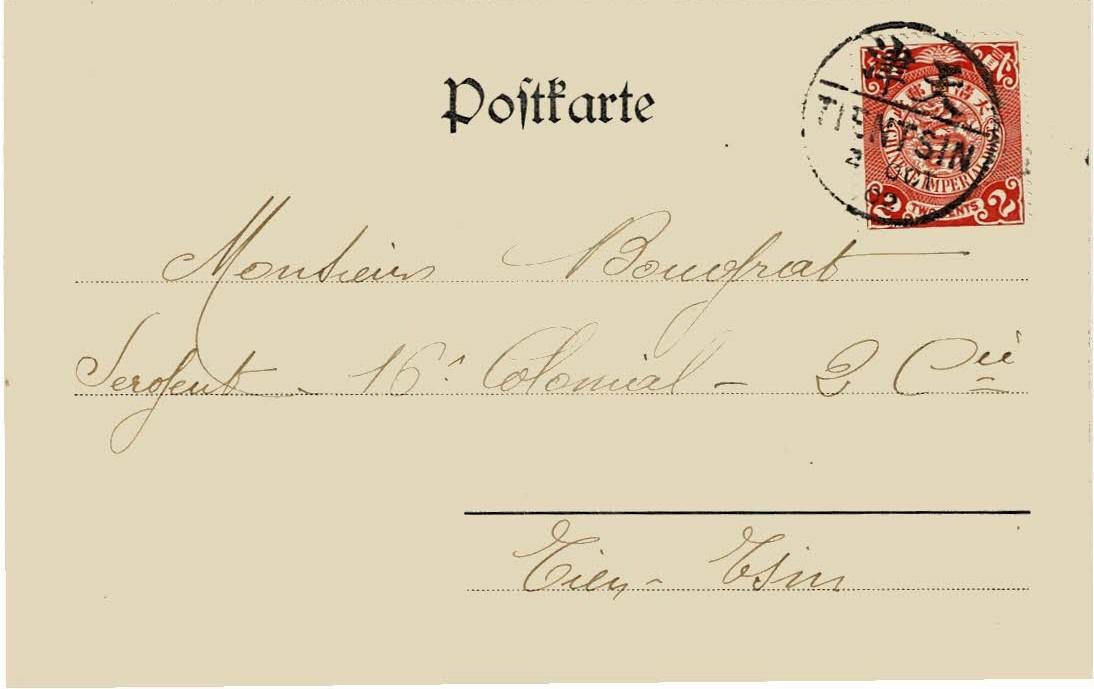 Postkarte
天津
TIENTSIN
2 OCT
02
大清國郵政
CHINESE IMPERIAL
2 TWO CENTS 2
Monsieur Bougrat
Sergent - 16e Colonial - 2 Cie
Tien-Tsin